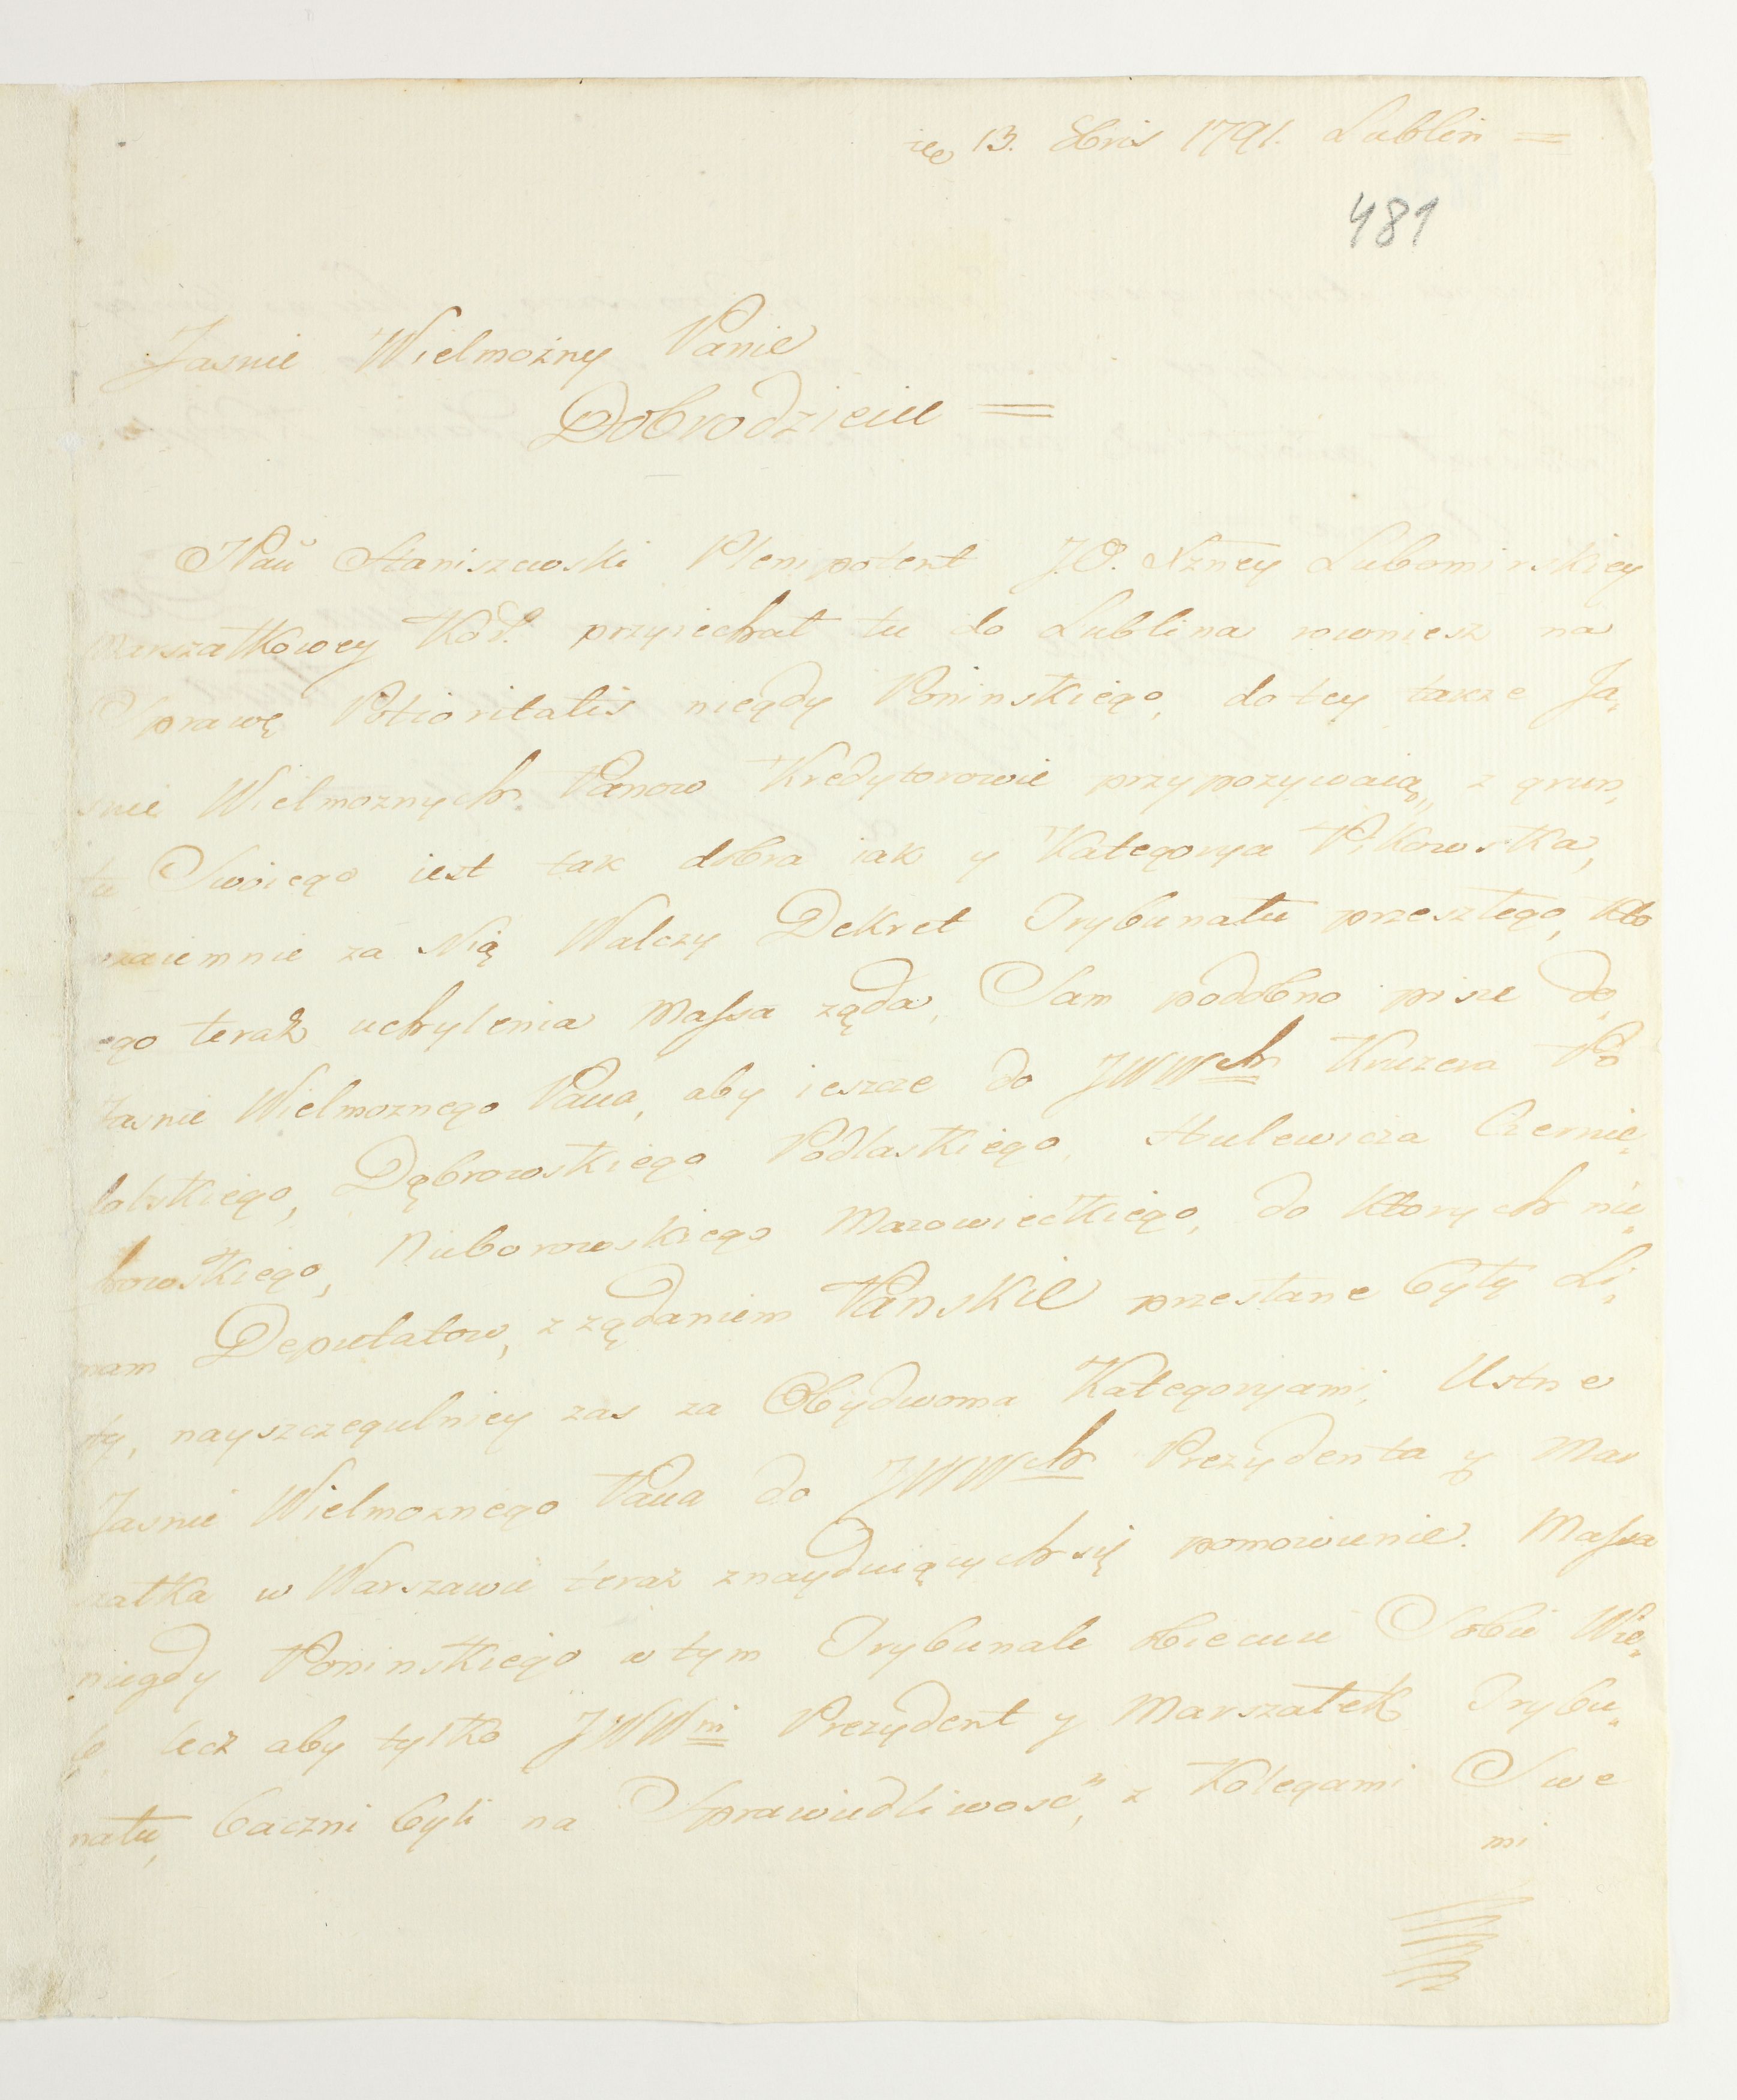 13. 8bris 1791. Lublin =
481
Jasnie Wielmożny Panie
Dobrodzieiu =
JPan Staniszewski Plenipotent J.O. Xżney Lubomirskiey
Marszałkowey Kor. przyiechał tu do Lublina rowniesz na
Sprawę Potioritatis niegdy Poninskiego, do tey takze Ja,,
snie Wielmoznych Panow Kredytorowie przypozywaią, z grun,,
tu Swoiego iest tak dobra iak y Kategorya Pikowska,
wzaiemnie za Nią Walczy Dekret Trybunału przeszłego, kto
ego teraz uchylenia Massa ząda, Sam podobno pisze do
Jasnie Wielmoznego Pana, aby ieszcze do JWWch Kruzera Po
lolskiego, Dąbrowskiego Podlaskiego, Hulewicza Czernie,,
howskiego, Nieborowskiego Mazowieckiego, do ktorych nie,,
mam Deputatow, z ządaniem Panskie przesłane były Li,,
sty, nayszczegulniey zas za Obydwoma Kategoryami, Ustne
Jasnie Wielmoznego Pana do JWWch Prezydenta y Mar
szałka w Warszawie teraz znayduiących się pomowienie. Massa
niegdy Poninskiego w tym Trybunale obiecuie Sobie Wie,,
le lecz aby tylko JWWni Prezydent y Marszałek Trybu,,
nału, baczni byli na Sprawiedliwosc, z Kolegami Swe
mi